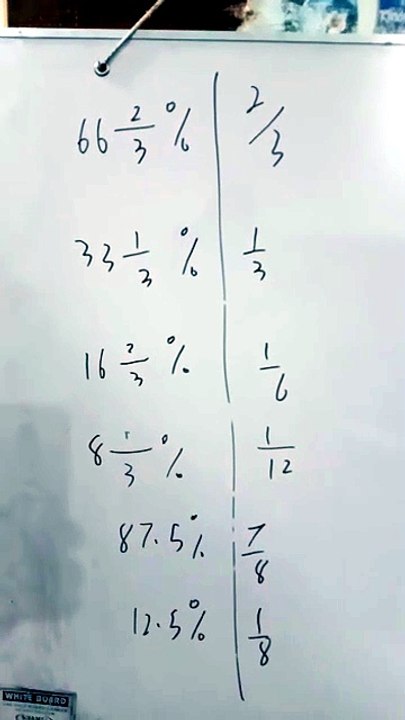 66 2/3 % | 2/3
33 1/3 % | 1/3
16 2/3 % | 1/6
8 1/3 % | 1/12
87.5% | 7/8
12.5% | 1/8
WHITE BOARD